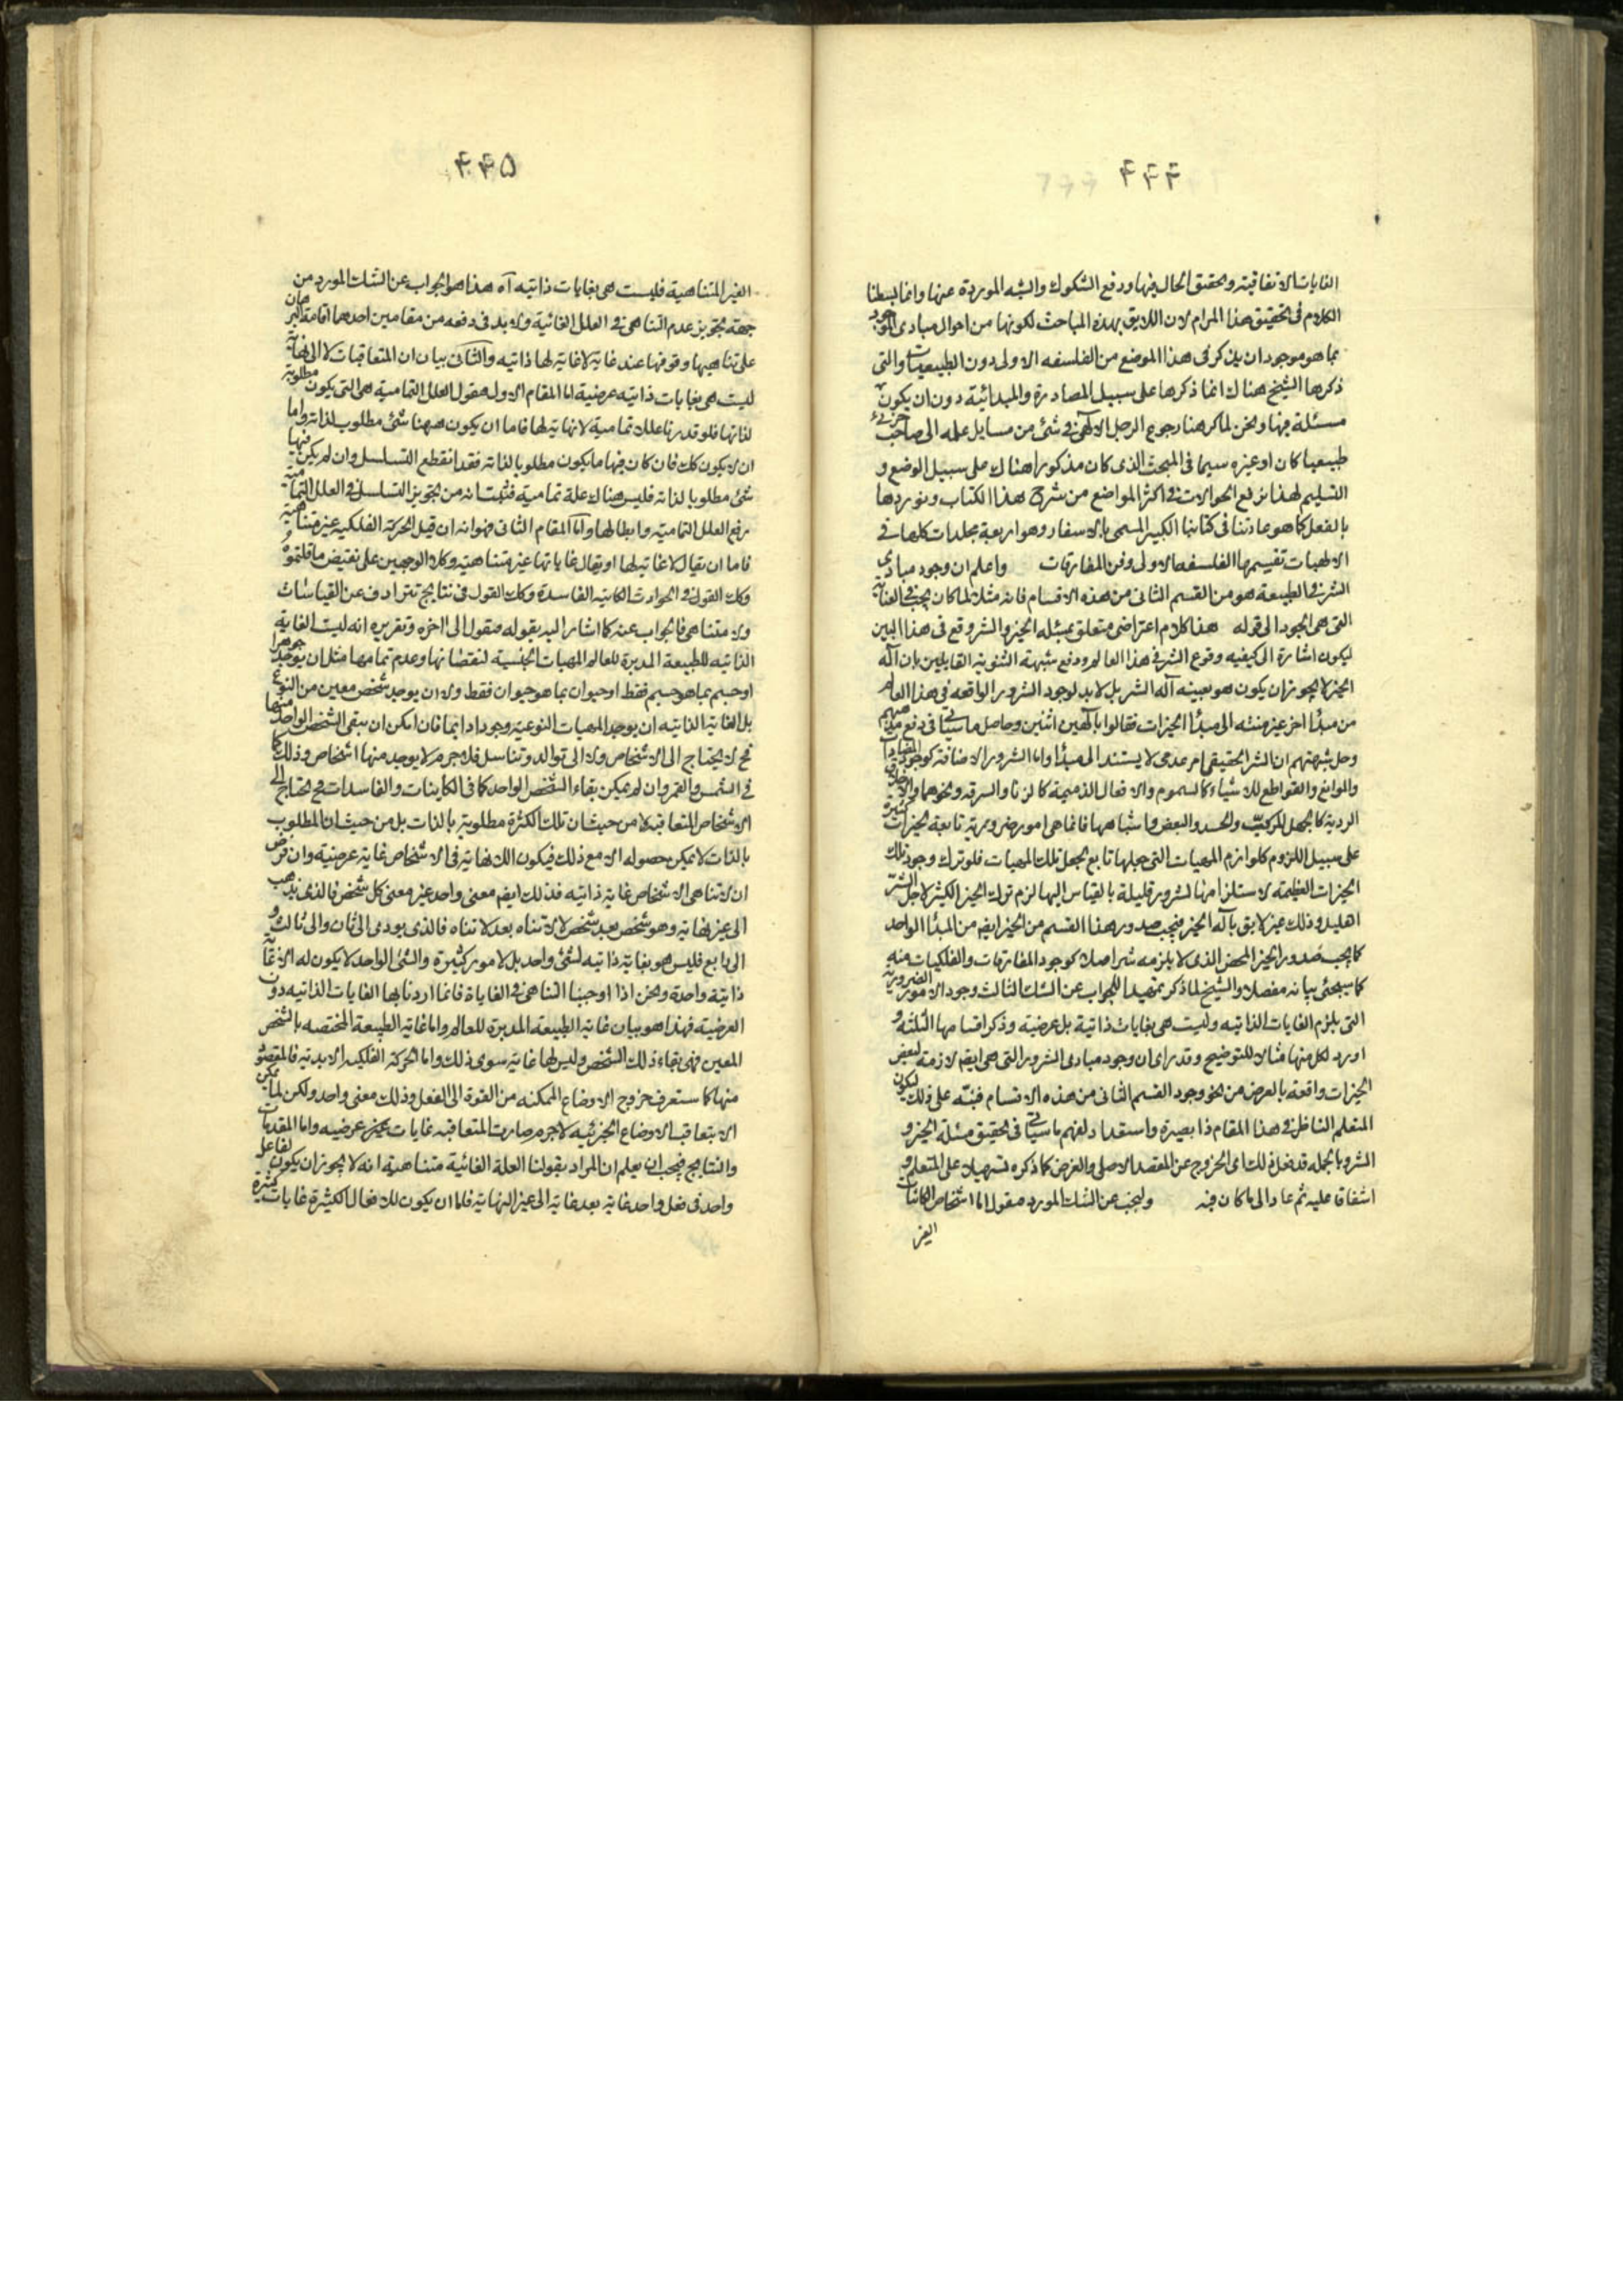 ۴۴۴
الغايات الاتفاقية وتحقيق الحال فيها ودفع الشكوك والشبه الموردة عنها وانما بسطنا
الكلام فى تحقيق هذا المرام لان اللايق بهذه المباحث لكونها من احوال مبادى الموجود
بما هو موجود ان يذكر فى هذا الموضع من الفلسفه الاولى دون الطبيعيات والتى
ذكرها الشيخ هناك انما ذكرها على سبيل المصادرة والمبدائية دون ان يكون
مسئلة فيها ونحن لما كرهنا رجوع الرجل الالهى فى شئ من مسايل علمه الى صاحب علم جزئى
طبيعيا كان او غيره سيما فى المبحث الذى كان مذكورا هناك على سبيل الوضع و
التسليم لهذا نرفع الحوالات فى اكثر المواضع من شرح هذا الكتاب ونوردها
بالفعل كما هو عادتنا فى كتابنا الكبير المسمى بالاسفار وهو اربعة مجلدات كلها فى
الالهيات بقسيمها الفلسفه الاولى وفن المفارقات واعلم ان وجود مبادى
الشر فى الطبيعة هو من القسم الثانى من هذه الاقسام فانه مثلا لما كان يجب فى العناية
التى هى الجود الى قوله هذا كلام اعتراضى متعلق بمسئله الخير والشر وقع فى هذا البين
ليكون اشارة الى كيفيه وقوع الشر فى هذا العالم ودفع شبهة الثنوية القايلين بان اله
الخير لا يجوز ان يكون هو بعينه اله الشر بل لا بد لوجود الشرور الواقعه فى هذا العالم
من مبدأ اخر غير منته الى مبدأ الخيرات فقالوا بالهين اثنين وحاصل ما سياتى فى دفع مذهبهم
وحل شبهتهم ان الشر الحقيقى امر عدمى لا يستند الى مبدأ واما الشرور الاضافة كوجود المضادات
والموانع والقواطع للاشياء كالسموم والافعال الذميمة كالزنا والسرقه ونحوهما والاخلاق
الردية كالجهل المركب والحسد والبغض واشباهها فانما هى امور ضرورية تابعة لخيرات كثيرة
على سبيل اللزوم كلوازم المهيات التى جعلها تابع لجعل تلك المهيات فلو ترك وجود تلك
الخيرات العظيمة لاستلزامها لشرور قليلة بالقياس اليها لزم ترك الخير الكثير لاجل الشر
القليل وذلك غير لايق باله الخير فيجب صدور هذا القسم من الخير ايضا من المبدأ الواحد
كما يجب صدور الخير المحض الذى لا يلزمه شر اصلا كوجود المفارقات والفلكيات منه
كما سيجئ بيانه مفصلا والشيخ لما ذكر تمهيدا للجواب عن الشك الثالث وجود الامور الضرورية
التى يلزم الغايات الذاتيه وليست هى بغايات ذاتية بل عرضية وذكر اقسامها الثلثه و
اورد لكل منها مثالا للتوضيح وقد راى ان وجود مبادى الشرور التى هى ايضا لازمة لبعض
الخيرات واقعة بالعرض من نحو وجود القسم الثانى من هذه الاقسام فنبه على ذلك ليكون
المتعلم الناظر فى هذا المقام ذا بصيرة واستعداد لفهم ما سياتى فى تحقيق مسئلة الخير و
الشر وبالجمله قد فعل ذلك اى الخروج عن المقصد الاصلى والغرض كما ذكره تسهيلا على المتعلم و
اشفاقا عليه ثم عاد الى ما كان فيه ولنجب عن الشك المورد فنقول اما اشخاص الكائنات
الغير
۴۴۵
الغير المتناهية فليست هى بغايات ذاتيه اه هذا هو الجواب عن الشك المورد من
جهة تجويز عدم التناهى فى العلل الغائية ولا بد فى دفعه من مقامين احدهما اقامة البرهان
على تناهيها وقوفها عند غاية لا غاية لها ذاتيه والثانى بيان ان المتعاقبات لا الى نهاية
ليست هى بغايات ذاتيه عرضية اما المقام الاول فنقول العلل التمامية هى التى يكون مطلوبة
لذاتها فلو قدرنا عللا تمامية لا نهاية لها فاما ان يكون ههنا شئ مطلوب لذاته واما
ان لا يكون كك فان كان فيها ما يكون مطلوبا لذاته فقد انقطع التسلسل وان لم يكن فيها
شئ مطلوبا لذاته فليس هناك علة تمامية فثبت انه من تجويز التسلسل فى العلل التمامية
رفع العلل التمامية وابطالها واما المقام الثانى فهو انه ان قيل الحركة الفلكيه غير متناهية
فاما ان يقال لا غاية لها او يقال غاياتها غير متناهية وكلا الوجهين على نقيض ما قلتموه
وكك القول فى الحوادث الكاينه الفاسدة وكك القول فى نتايج تترادف عن القياسات
ولا متناهى فالجواب عنه كما اشار اليه بقوله فنقول الى اخره وتقريره انه ليست الغاية
الذاتيه للطبيعة المدبرة للعالم المهيات الجنسية لنقصانها وعدم تمامها مثل ان يوجد جوهرا
او جسم بما هو جسم فقط او حيوان بما هو حيوان فقط ولا ان يوجد شخص معين من النوع
بل الغاية الذاتيه ان يوجد المهيات النوعية وجودا دايما فان امكن ان يبقى الشخص الواحد منها
فح لا يحتاج الى الاشخاص ولا الى توالد وتناسل فلا جرم لا يوجد منها اشخاص وذلك كما
فى الشمس والقمر وان لم يمكن بقاء الشخص الواحد كما فى الكاينات والفاسدات فح يحتاج الى
الاشخاص المتعاقبه لا من حيث ان تلك الكثرة مطلوبة بالذات بل من حيث ان المطلوب
بالذات لا يمكن حصوله الا مع ذلك فيكون اللانهاية فى الاشخاص غاية عرضية وان فرض
ان لا تناهى الاشخاص غاية ذاتيه فذلك ايضا معنى واحد غير معنى كل شخص فالذى يذهب
الى غير نهاية وهو شخص بعد شخص لا لا تناه بعد لا تناه فالذى يودى الى ثان والى ثالث و
الى رابع فليس هو بغاية ذاتيه لشئ واحد بل لامور كثيرة والشئ الواحد لا يكون له الا غاية
ذاتية واحدة ونحن اذا اوجبنا التناهى فى الغاياة فانما اردنا بها الغايات الذاتيه دون
العرضية فهذا هو بيان غاية الطبيعة المدبرة للعالم واما غاية الطبيعة المختصه بالشخص
المعين فهى بقاء ذلك الشخص وليس لها غاية سوى ذلك واما الحركة الفلكيه الابدية فالمقصود
منها كما ستعرف خروج الاوضاع الممكنه من القوة الى الفعل وذلك معنى واحد ولكن لما لم يمكن
الا بتعاقب الاوضاع الجزئيه لا جرم صارت المتعاقبه غايات عرضيه واما المقدمات
والنتايج فيجب ان يعلم ان المراد بقولنا العلة الغائية متناهية انه لا يجوز ان يكون لفاعل
واحد فى فعل واحد غاية بعد غاية الى غير النهاية فاما ان يكون للافعال الكثيرة غايات كثيرة